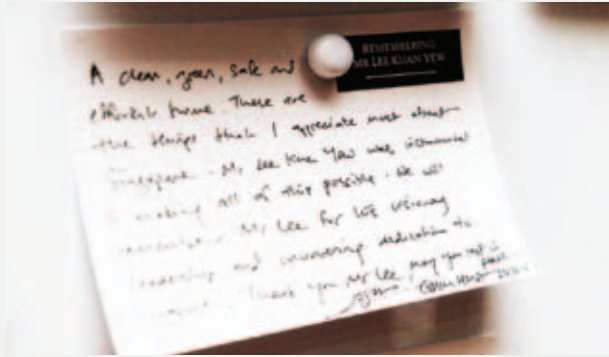 REMEMBERING
MR LEE KUAN YEW
A clean, green, safe and
efficient home. These are
the things that I appreciate most about
Singapore. Mr Lee Kuan Yew was instrumental
in making all of this possible. We will
remember Mr Lee for his visionary
leadership and unwavering dedication to
Thank you Mr Lee may you rest in
peace